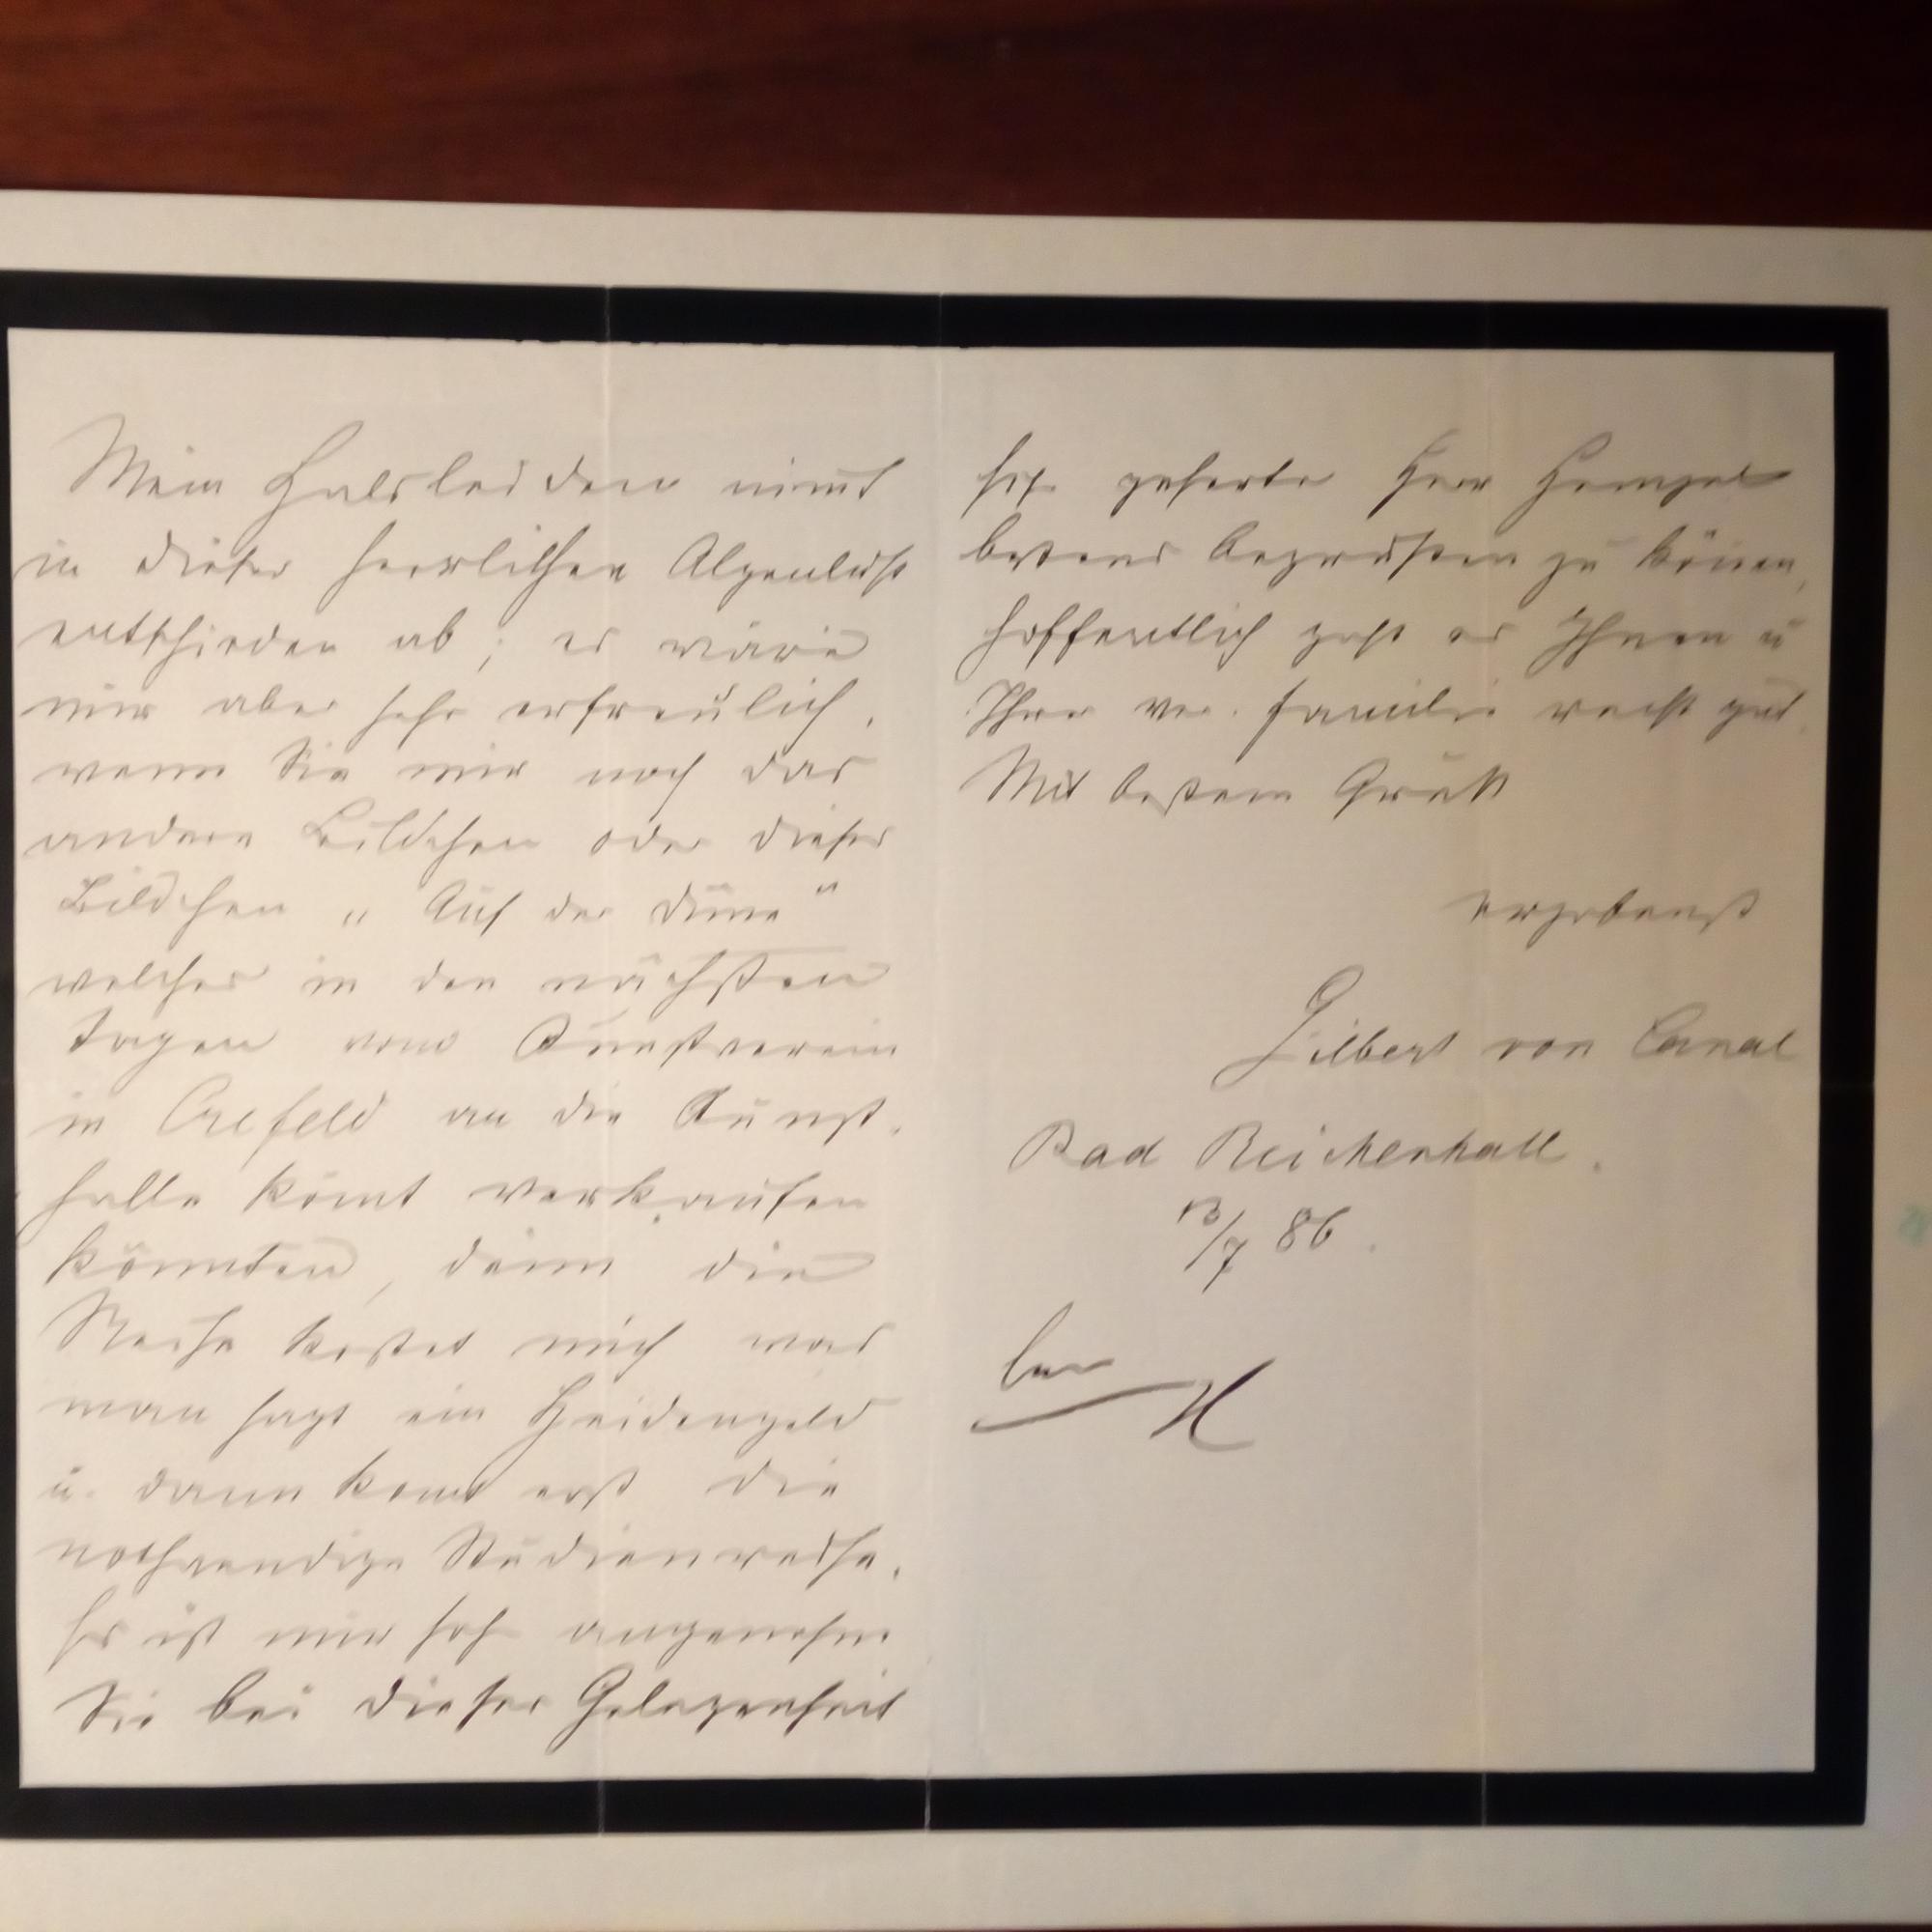 Mein Halsleiden nimt
in dieser herrlichen Alpenluft
entschieden ab; es wäre
mir aber sehr erfreulich,
wenn Sie mir noch das
andere Bildchen oder dieses
Bildchen „Auf der Düne“
welches in den nächsten
Tagen vom Kunstverein
in Crefeld an die Kunst-
halle komt verkaufen
könnten, denn die
Reise kostet mich was
man sagt ein Heidengeld
u. dann komt erst die
nothwendige Studienreise.
Es ist mir sehr angenehm
Sie bei dieser Gelegenheit
sehr geehrter Herr Hempel
bestens begrüßen zu können,
hoffentlich geht es Ihnen u
Ihrer Familie recht gut.
Mit bestem Gruß
ergebenst
Gilbert von Canal
Bad Reichenhall.
13/7 86.
H